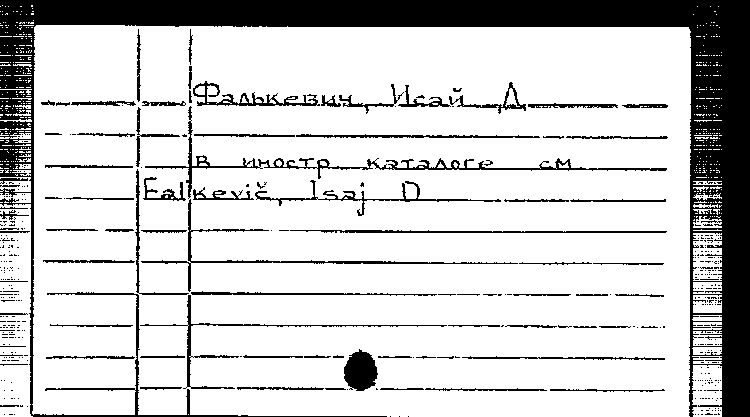 Фалькевич, Исай Д
в иностр каталоге см
Falkevič, Isaj D